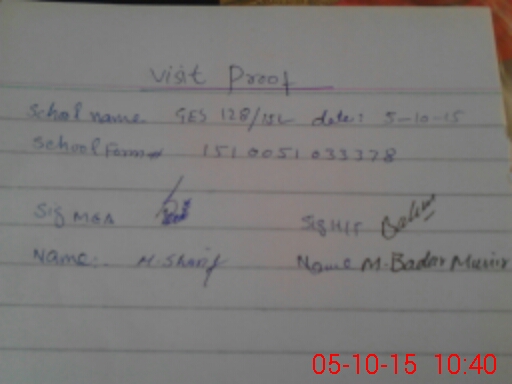 Visit Proof
School name GES 128/15L date: 5-10-15
School Form 1510051033378
Sig MEA Sig H/T
Name:- M. Sharif Name M. Badar Munir
05-10-15 10:40